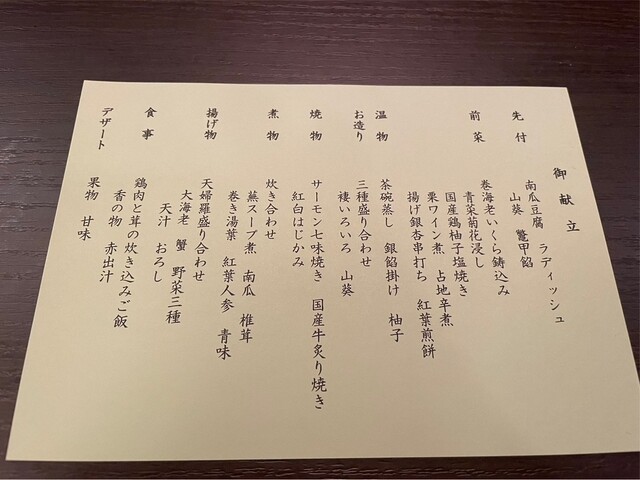 御献立
先付
南瓜豆腐 ラディッシュ
山葵 鼈甲餡
前菜
巻海老いくら鋳込み
青菜菊花浸し
国産鶏柚子塩焼き
栗ワイン煮 占地辛煮
揚げ銀杏串打ち 紅葉煎餅
温物
茶碗蒸し 銀餡掛け 柚子
お造り
三種盛り合わせ
褄いろいろ 山葵
焼物
サーモン七味焼き 国産牛炙り焼き
紅白はじかみ
煮物
炊き合わせ
蕪スープ煮 南瓜 椎茸
巻き湯葉 紅葉人参 青味
揚げ物
天婦羅盛り合わせ
大海老 蟹 野菜三種
天汁 おろし
食事
鶏肉と茸の炊き込みご飯
香の物 赤出汁
デザート
果物 甘味